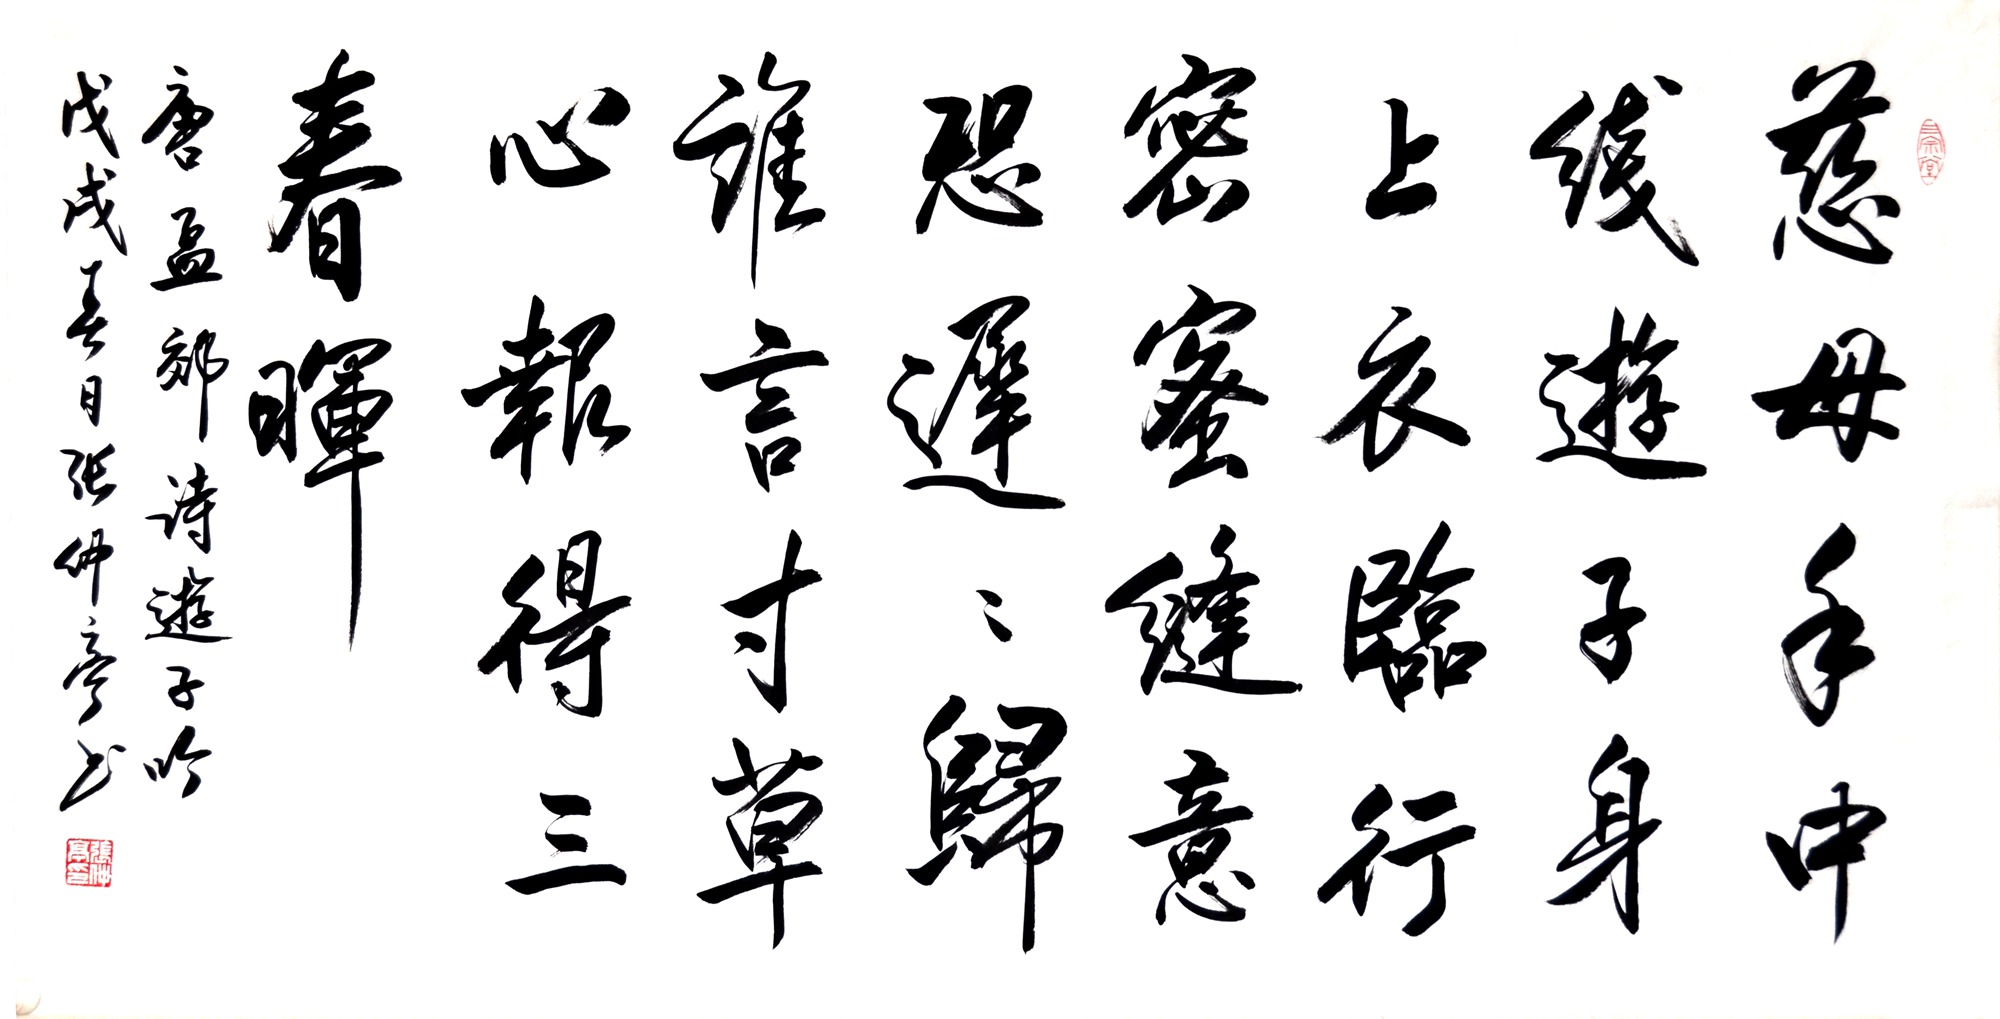 慈母手中
线遊子身
上衣臨行
密蜜縫意
恐遲〻歸
誰言寸草
心報得三
春暉
唐孟郊诗遊子吟
戊戌春日张仲亭书
張仲亭印